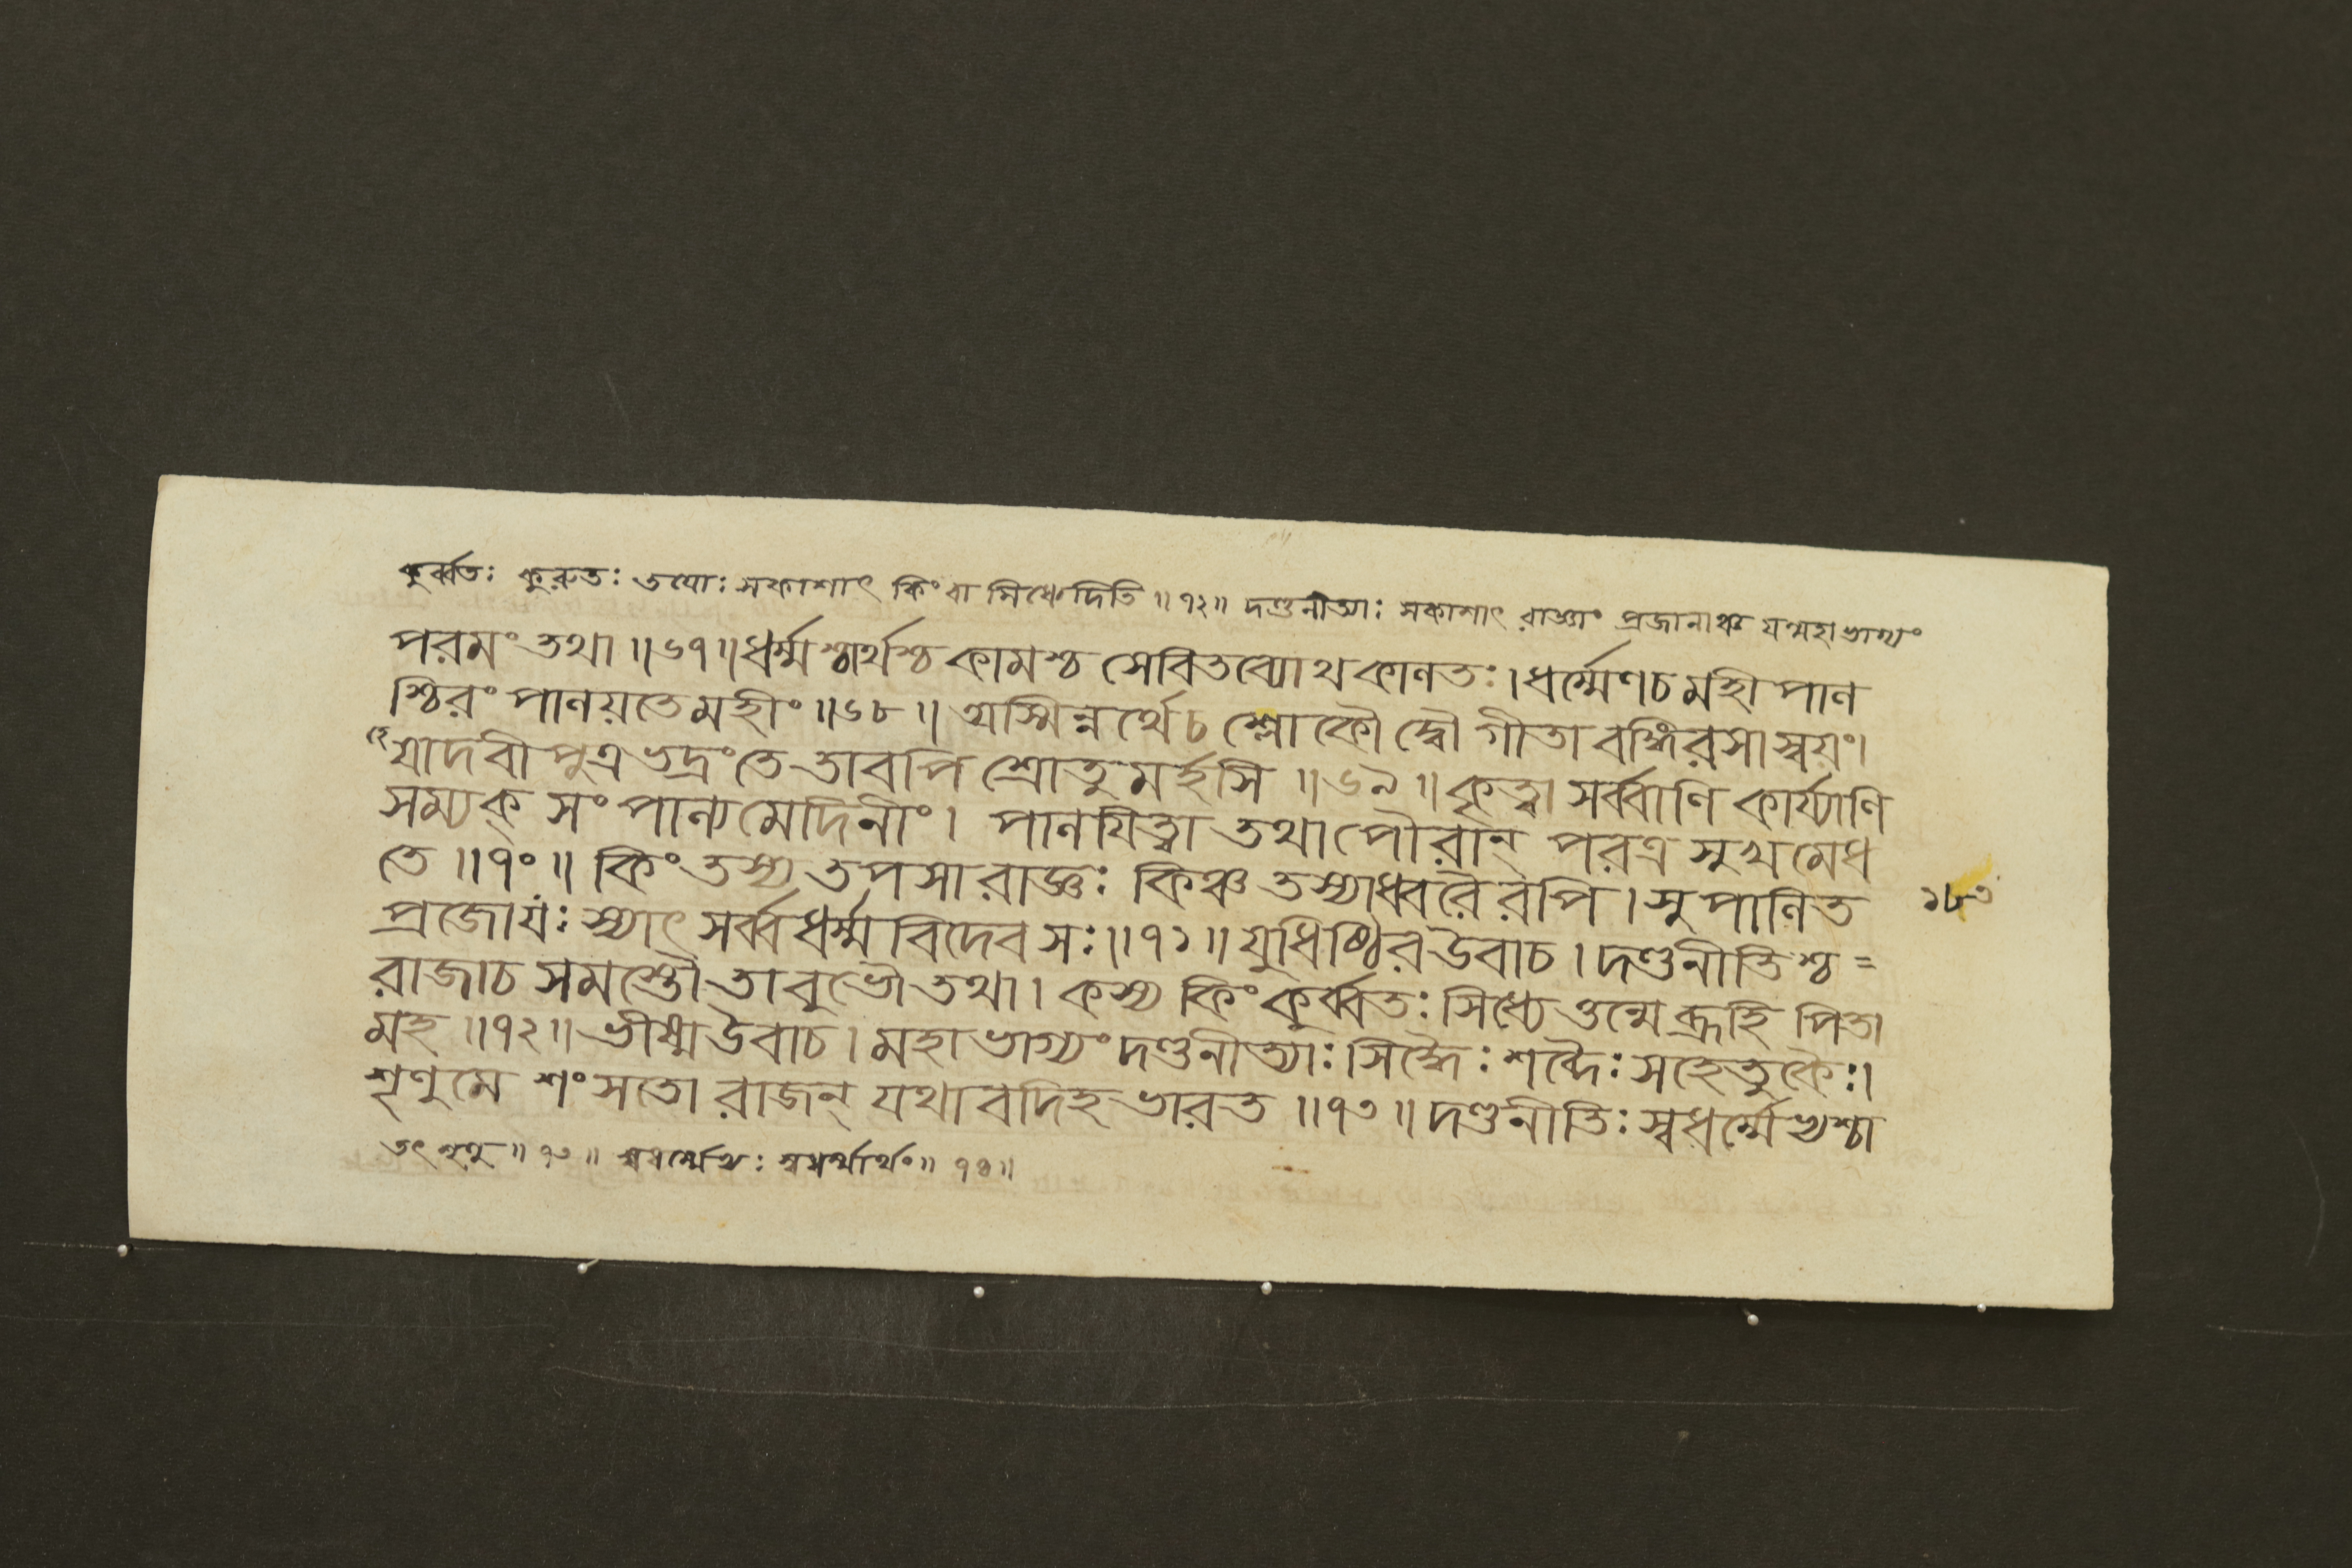 কুর্ব্বতঃ কুরুতঃ তয়োঃ সকাশাৎ কিংবা সিধ্যেদিতি ॥ ৭২॥ দণ্ডনীত্যাঃ সকাশাৎ রাজ্ঞাং প্রজানাঞ্চ যন্মহাভাগ্যং
পরমং তথা ॥৬৭॥ ধর্ম্মশ্চার্থশ্চ কামশ্চ সেবিতব্যোথকালতঃ । ধর্ম্মেণচ মহীপাল
শ্চিরং পালয়তে মহীং ॥৬৮॥ অস্মিন্নর্থেচ শ্লোকৌ দ্বৌ গীতাবঙ্গিরসা স্বয়ং।
যাদবীপুত্র ভদ্রং তে তাবপি শ্রোতুমর্হসি ॥৬৯॥ কৃত্বা সর্ব্বাণি কার্য্যাণি
সম্যক্ সংপাল্য মেদিনীং। পালযিত্বা তথা পৌরান্ পরত্র সুখমেধ
তে ॥৭০॥ কিং তস্য তপসা রাজ্ঞঃ কিঞ্চ তস্যাধ্বরৈরপি । সুপালিত
১৮৩
প্রজো যঃ স্যাৎ সর্ব্বধর্ম্মবিদেব সঃ ॥৭১॥ যুধিষ্ঠির উবাচ । দণ্ডনীতিশ্চ =
রাজাচ সমস্তৌ তাবুভৌ তথা । কস্য কিং কুর্ব্বতঃ সিধ্যেত্তন্মে ব্রূহি পিতা
মহ ॥৭২॥ ভীষ্ম উবাচ । মহাভাগ্যং দণ্ডনীত্যাঃ সিদ্ধৈঃ শব্দৈঃ সহেতুকৈঃ।
শৃণুমে শংসতো রাজন্ যথাবদিহ ভারত ॥৭৩॥ দণ্ডনীতিঃ স্বধর্ম্মেভ্যশ্চা
তৎ শৃণু ॥ ৭৩ ॥ স্বধর্ম্মেভ্যঃ স্বধর্ম্মার্থং॥ ৭৪॥